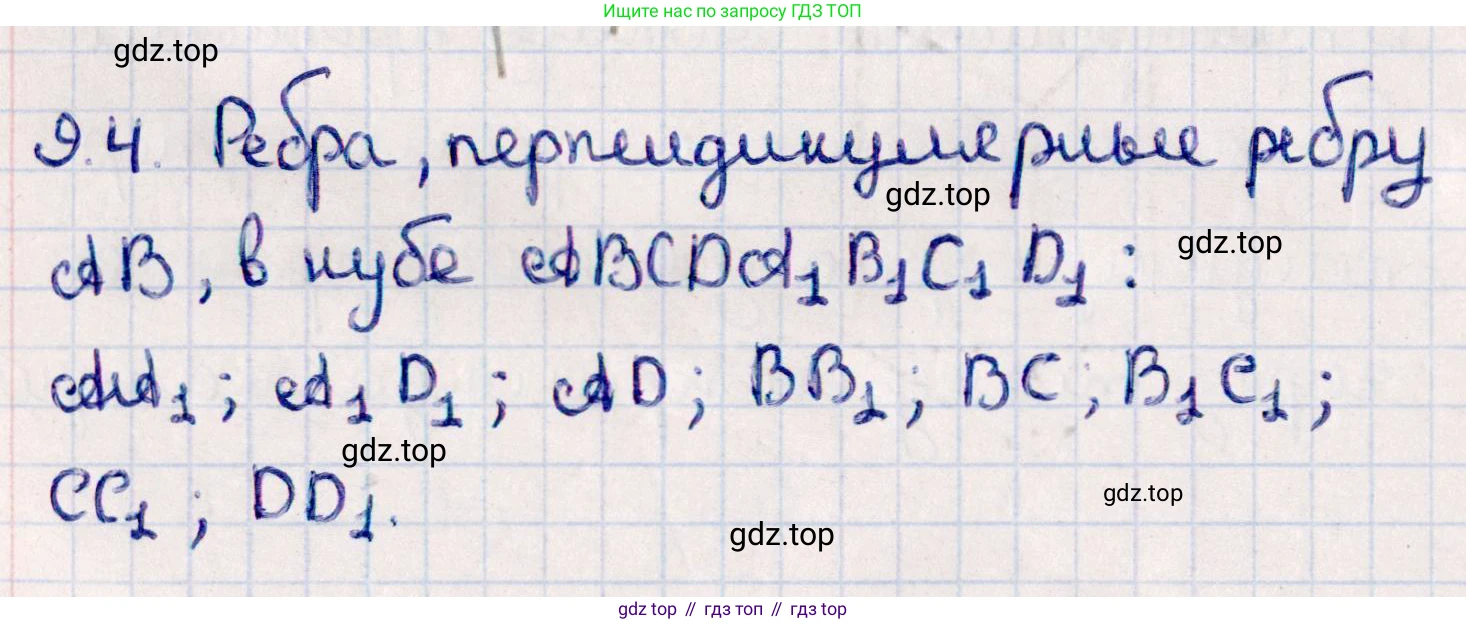 Ищите нас по запросу ГДЗ ТОП
gdz.top
9.4. Ребра, перпендикулярные ребру
gdz.top
AB, в кубе ABCDA₁B₁C₁D₁:
gdz.top
AA₁; A₁D₁; AD; BB₁; BC; B₁C₁;
gdz.top
CC₁; DD₁.
gdz.top
gdz.top
gdz top // гдз топ // гдз top